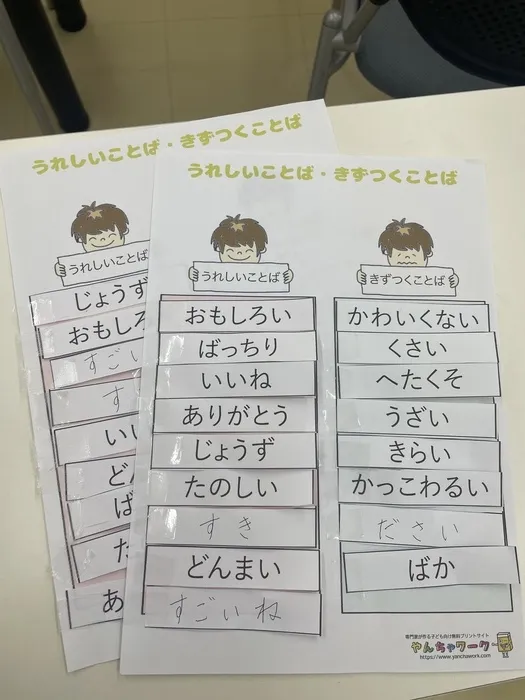 うれしいことば・きずつくことば
うれしいことば
じょうず
おもしろ
すごい
す
いい
どん
ば
た
あ
うれしいことば・きずつくことば
うれしいことば
おもしろい
ばっちり
いいね
ありがとう
じょうず
たのしい
すき
どんまい
すごいね
きずつくことば
かわいくない
くさい
へたくそ
うざい
きらい
かっこわるい
ださい
ばか
専門家が作る子ども向け無料プリントサイト
やんちゃワーク
https://www.yanchawork.com